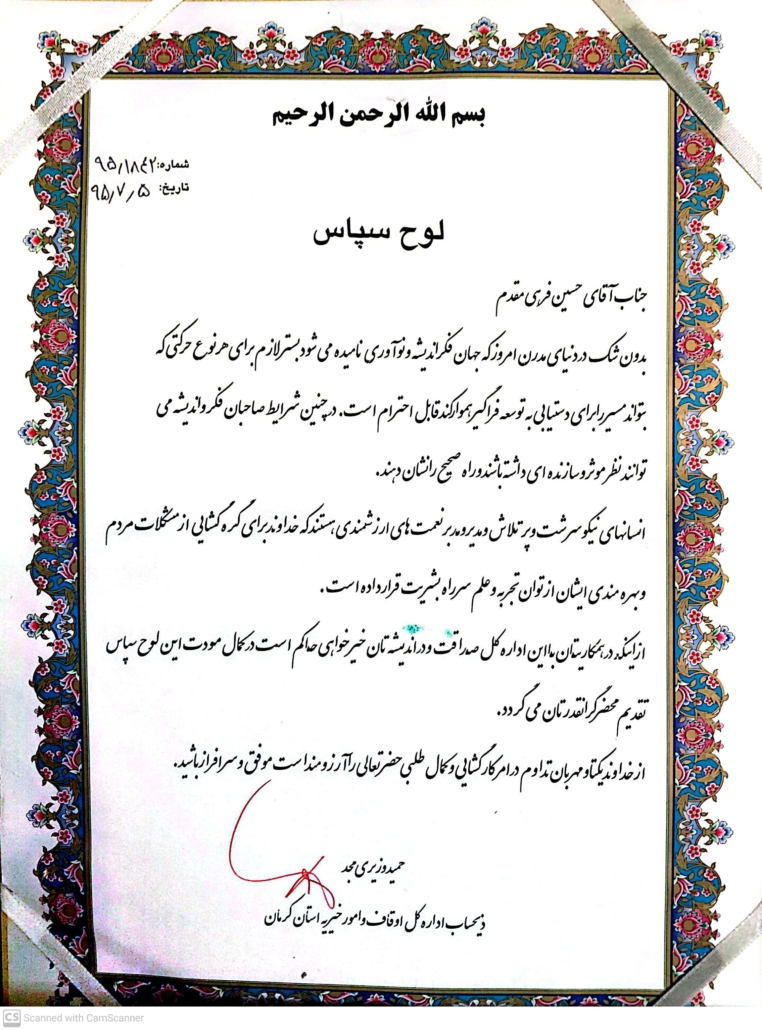 بسم الله الرحمن الرحیم
شماره: ۹۵/۱۸۴۲
تاریخ: ۹۵/۷/۵
لوح سپاس
جناب آقای حسین فرهی مقدم
بدون شک در دنیای مدرن امروز که جهان فکر اندیشه و نوآوری نامیده می شود بستر لازم برای هر نوع حرکتی که
بتواند مسیر را برای دستیابی به توسعه فراگیر هموار کند قابل احترام است. در چنین شرایط صاحبان فکر و اندیشه می
توانند نظر موثر و سازنده ای داشته باشند و راه صحیح را نشان دهند.
انسانهای نیکو سرشت و پر تلاش و مدیر و مدبر نعمت های ارزشمندی هستند که خداوند برای گره گشایی از مشکلات مردم
و بهره مندی ایشان از توان تجربه و علم سر راه بشریت قرار داده است.
از اینکه در همکاریتان با این اداره کل صداقت و در اندیشه تان خیرخواهی حاکم است در کمال مودت این لوح سپاس
تقدیم محضر گرانقدرتان می گردد.
از خداوند یکتا و مهربان تداوم در امر کارگشایی و کمال طلبی حضرتعالی را آرزومند است موفق و سرافراز باشید.
حمید وزیری مجد
ذیحساب اداره کل اوقاف و امور خیریه استان کرمان
CS Scanned with CamScanner